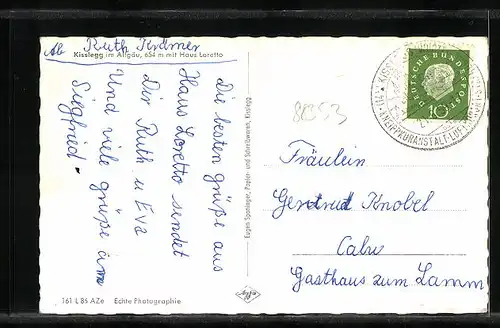 Ab Ruth Krämer
Kisslegg im Allgäu, 654 m mit Haus Loretto
Die besten grüße aus
Haus Loretto sendet
Dir Ruth u Eva
Und viele grüße an
Siegfried.
161 L 86 AZe Echte Photographie
Eugen Sponlager, Papier- und Schreibwaren, Kisslegg
88353
DEUTSCHE BUNDESPOST
10
KNEIPPKURANSTALT LUFTKURORT
Fräulein
Gertrud Knobel
Calw
Gasthaus zum Lamm